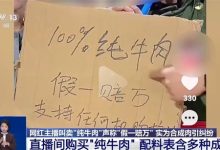 CCTV 13
新闻
100%纯牛肉
假一赔万
支持任何
330
网红主播叫卖“纯牛肉”声称“假一赔万” 实为合成肉引纠纷
直播间购买“纯牛肉” 配料表含多种成